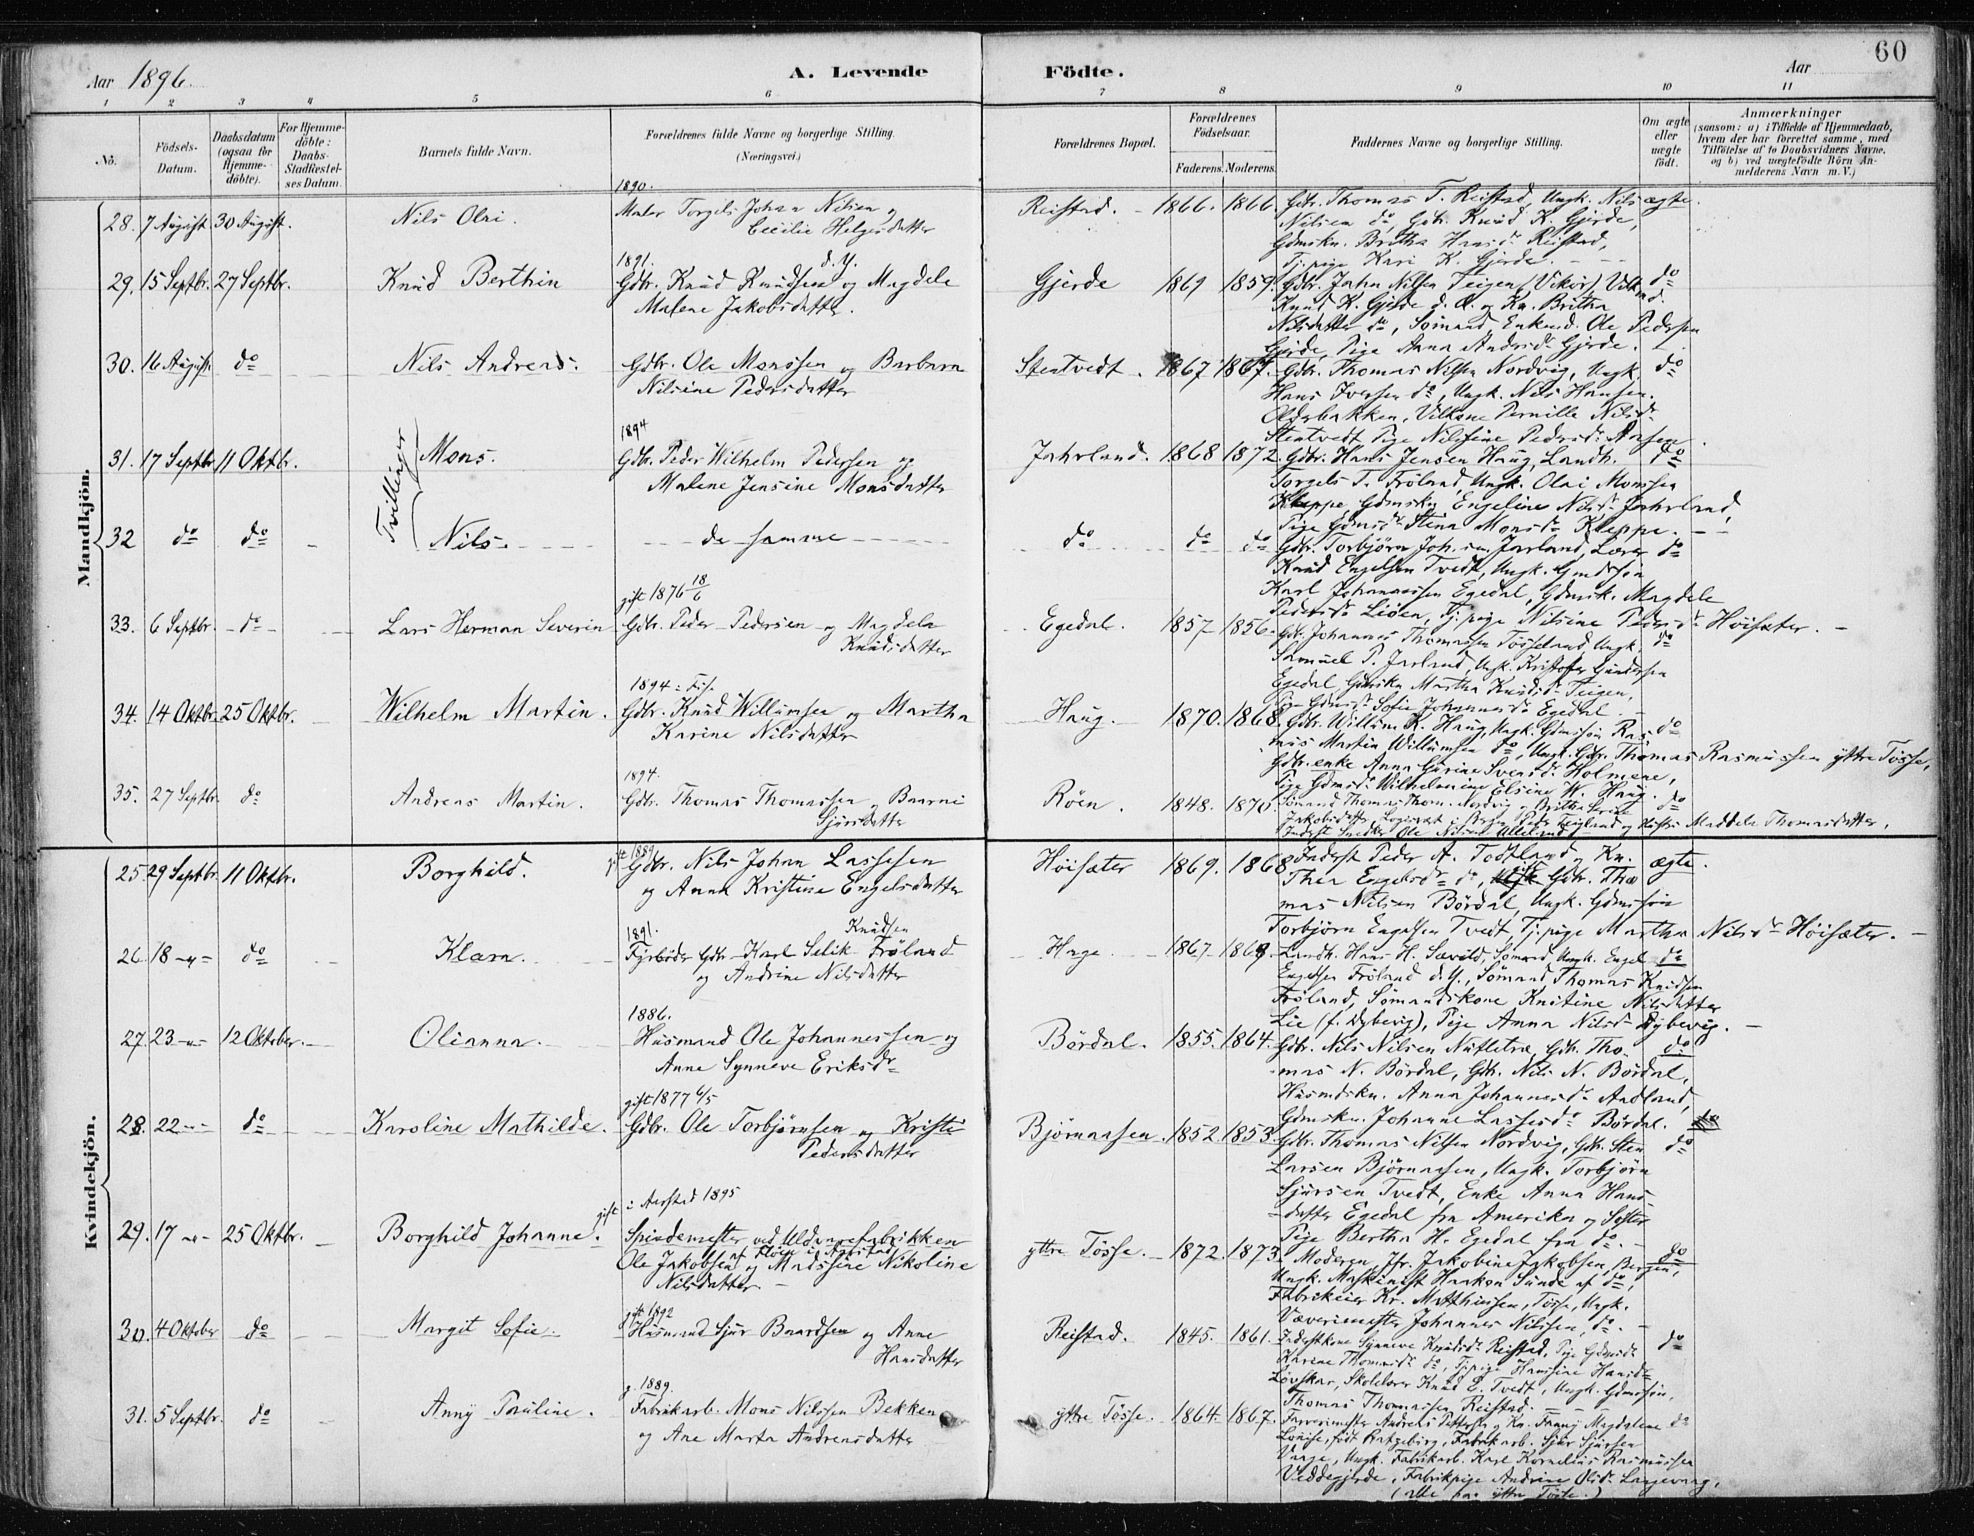 60
Aar 1896.
A. Levende Födte.
Aar
1 2 3 4 5 6 7 8 9 10 11
No.
Födsels-Datum.
Daabsdatum (ogsaa for Hjemme-döbte).
For Hjemme-döbte: Daabs-Stadfæstel-ses Datum.
Barnets fulde Navn.
Forældrenes fulde Navne og borgerlige Stilling. (Næringsvei.)
Forældrenes Bopæl.
Forældrenes Födselsaar.
Faderens. Moderens.
Faddernes Navne og borgerlige Stilling.
Om ægte eller uægte födt.
Anmærkninger
(saasom: a) i Tilfælde af Hjemmedaab, hvem der har forrettet samme, med Tilföielse af to Daabsvidners Navne, og b) ved uægtefödte Börn An-melderens Navn m. V.)
Mandkjön.
1890.
28. 7 August 30 August. Nils Olai. Maler Torgels Johan Nilsen og Cecilie Helgesdatter Reistad. 1866. 1866 Gdr. Thomas T. Reistad, Ungk. Nils ægte.
Nilsen do, Gdr. Knud K. Gjerde,
Gdmskn. Britha Hansdr Reistad,
Tj.pige Kari K. Gjerde.
1891. d. y.
29. 15 Septbr. 27 Septbr. Knud Berthin Gdbr. Knud Knudsen og Magdele Malene Jakobsdatter. Gjerde 1869 1859. Gdbr. John Nilsen Teigen (Vikör) do
Knud K. Gjerde d. Æ. og Kn. Britha
Nilsdatter do, Sömand, Enkemd. Ole Pedersen
Gjerde, Pige Anna Andersdr Gjerde.
30. 16 August. do Nils Andreas. Gdbr. Ole Monssen og Barbara Nilsine Pedersdatter Stentvedt. 1867 1867. Gdbr. Thomas Nilsen Nordvig, Ungk. do
Hans Iversen do, Ungk. Nils Hansen
Olderbakken, Pernille Nilsdr
Stentvedt Pige Nilsine Pedersdr Aasen.
Tvillinger
1894
31. 17 Septbr. 11 Oktbr. Mons. Gdbr. Peder Wilhelm Pedersen og Malene Jensine Monsdatter Jahrland. 1868 1872. Gdbr. Hans Jensen Haug, Landh. do
Torgels T. Fröland, Ungk. Olai Monsen
Kleppe, Gdmskn. Engeline Nilsdr Jahrland,
Pige Gdmsdr Stena Monsdr Kleppe.
32 do do Nils. de samme do do do Gdbr. Torbjörn Joh.sen Jarland, Lærer do
Knud Engelsen Tvedt, Ungk. Gmdssön
Karl Johannessen Egedal, Gdmsk. Magdele
Pedersdr Lien, Tj.pige Nilsine Pedersdr Höisæter.
gift 1876 18/6
33. 6 Septbr. do Lars Herman Severin Gdbr. Peder Pedersen og Magdela Knudsdatter Egedal. 1857 1856. Gdr. Johannes Thomassen Tösseland, Ungk. do
Samuel P. Jarland, Ungk. Kristofer Gundersen
Egedal Gdmskn Martha Knudsdr Teigen,
Pige Gdmsdr Sofie Johannesdr Egedal
1894
34. 14 Oktbr. 25 Oktbr. Wilhelm Martin. Gdbr. Knud Willumsen og Martha Karine Nilsdatter Haug. 1870. 1868. Gdbr. Willum K. Haug, Ungk. Gdmssön Ras- do
mus Martin Willumsen do, Ungk. Gdbr. Thomas Rasmussen yttre Tösse,
Gdbr.enke Anna Gurine Svensdr Holmene,
Pige Gdmsdr Wilhelmine Elsine W. Haug.
1894.
35. 27 Septbr. do Andreas Martin. Gdbr. Thomas Thomassen og Baarni Sjursdatter Röen. 1848. 1870. Sömand Thomas Thom. Nordvig og Britha Serine do
Jakobsdatter, Peder Teigland og Hustru Maddela Thomasdatter.
Inderst Snedker Ole Nilsen
Kvindekjön.
gift 1889
25. 29 Septbr. 11 Oktbr. Borghild. Gdbr. Nils Johan Lassesen og Anna Kristine Engelsdatter Höisæter 1869. 1868 Inderst Peder A. Todtland og Kn. ægte.
Thea Engelsdr do, Gdbr. Tho-
mas Nilsen Bördal, Ungk. Gdmssön
Torbjörn Engelsen Tvedt Tj.pige Martha Nilsdr Höisæter.
1891. Knudsen
26. 18 -"- do Klara. Fyrböder Gdr Karl Selik Fröland og Andrine Nilsdatter Hage 1867 1869. Landh. Hans H. Sævild, Sömand, Ungk. Engel do
Engelsen Fröland d. Y., Sömand Thomas Knudsen
Fröland, Sömandskone Kristine Nilsdatter
Lie (f. Dybevig), Pige Anna Nilsdr Dybevig.
1886.
27. 23 -"- 12 Oktober. Olianna. Husmand Ole Johannessen og Anne Synneve Eriksdr Bördal. 1855. 1864. Gdbr. Nils Nilsen Nutletræ, Gdbr. Tho- do
mas N. Bördal, Gdbr. Nils N. Bördal,
Husmdskn. Anna Johannesdr Aadland,
Gdmskn. Johanne Lassesdr Bördal.
gift 1877 6/5
28. 22 -"- do Karoline Mathilde. Gdbr. Ole Torbjörnsen og Kristi Pedersdatter Björnaasen. 1852 1853. Gdbr. Thomas Nilsen Nordvig, Gdbr. Sten do
Larsen Björnaasen, Ungk. Torbjörn
Sjursen Tvedt, Enke Anna Hans-
datter Egedal fra Amerika og Söster
Pige Bertha H. Egedal fra do.
gift i Aarstad 1895
29. 17 -"- 25 Oktbr. Borghild Johanne. Spindemester ved Uldvarefabrikken Ole Jakobsen af Flöen i Aarstad og Madssine Nikoline Nilsdatter yttre Tösse. 1872. 1873. Moderen, Jfr. Jakobine Jakobsen, Bergen, do
Ungk. Maskinist Haakon Sunde af do,
Fabrikeier Kr. Matthiessen, Tösse, Ungk.
Væverimester Johannes Nilsen, do.
gift 1892
30. 4 Oktober do Margit Sofie. Husmand Sjur Baardsen og Anne Hansdatter Reistad. 1845. 1861. Inderstkone Synneve Knudsdr Reistad, Pige Gdmsdr do
Karine Thomasdr do, Tj.pige Hansine Hansdr
Lövskar, Skolelærer Knud E. Tvedt, Ungk. Gdmssön
Thomas Thomassen Reistad.
g. 1889.
31. 5 Septbr. do Anny Pauline. Fabrikarb. Mons Nilssen Bekken og Ane Marta Andreasdatter yttre Tösse. 1864. 1867. Farverimester Andreas Pettersen og Kn. Fanny Magdalene do
Louise, född Ratzeburg, Fabrikarb. Sjur Sjursen
Vaage, Ungk. Fabrikarb. Karl Kornelius Rasmussen
Veddegjerde, Fabrikpige Andrine Olsdr Langevaag,
(alle paa yttre Tösse.)